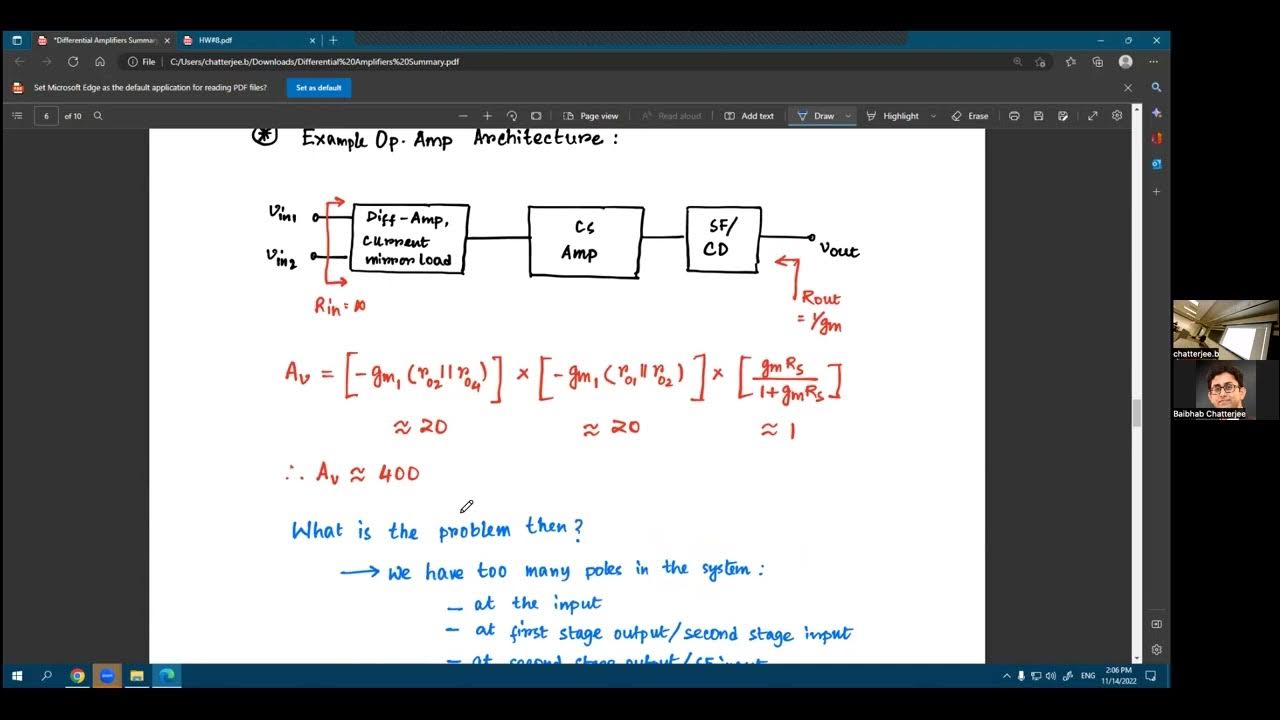 *Differential Amplifiers Summar
HW#8.pdf
File
C:/Users/chatterjee.b/Downloads/Differential%20Amplifiers%20Summary.pdf
Set Microsoft Edge as the default application for reading PDF files?
Set as default
6 of 10
Page view
Read aloud
Add text
Draw
Highlight
Erase
Example Op. Amp Architecture :
Vin1
Vin2
Diff-Amp,
current
mirror load
CS
Amp
SF/
CD
Vout
Rin = ∞
Rout
= 1/gm
Av = [-gm1 (ro2 || ro4)] × [-gm1 (ro1 || ro2)] × [gm Rs / 1 + gm Rs]
≈ 20 ≈ 20 ≈ 1
∴ Av ≈ 400
What is the problem then?
→ We have too many poles in the system :
– at the input
– at first stage output/second stage input
– at second stage output/SF input
chatterjee.b
Baibhab Chatterjee
ENG
2:06 PM
11/14/2022